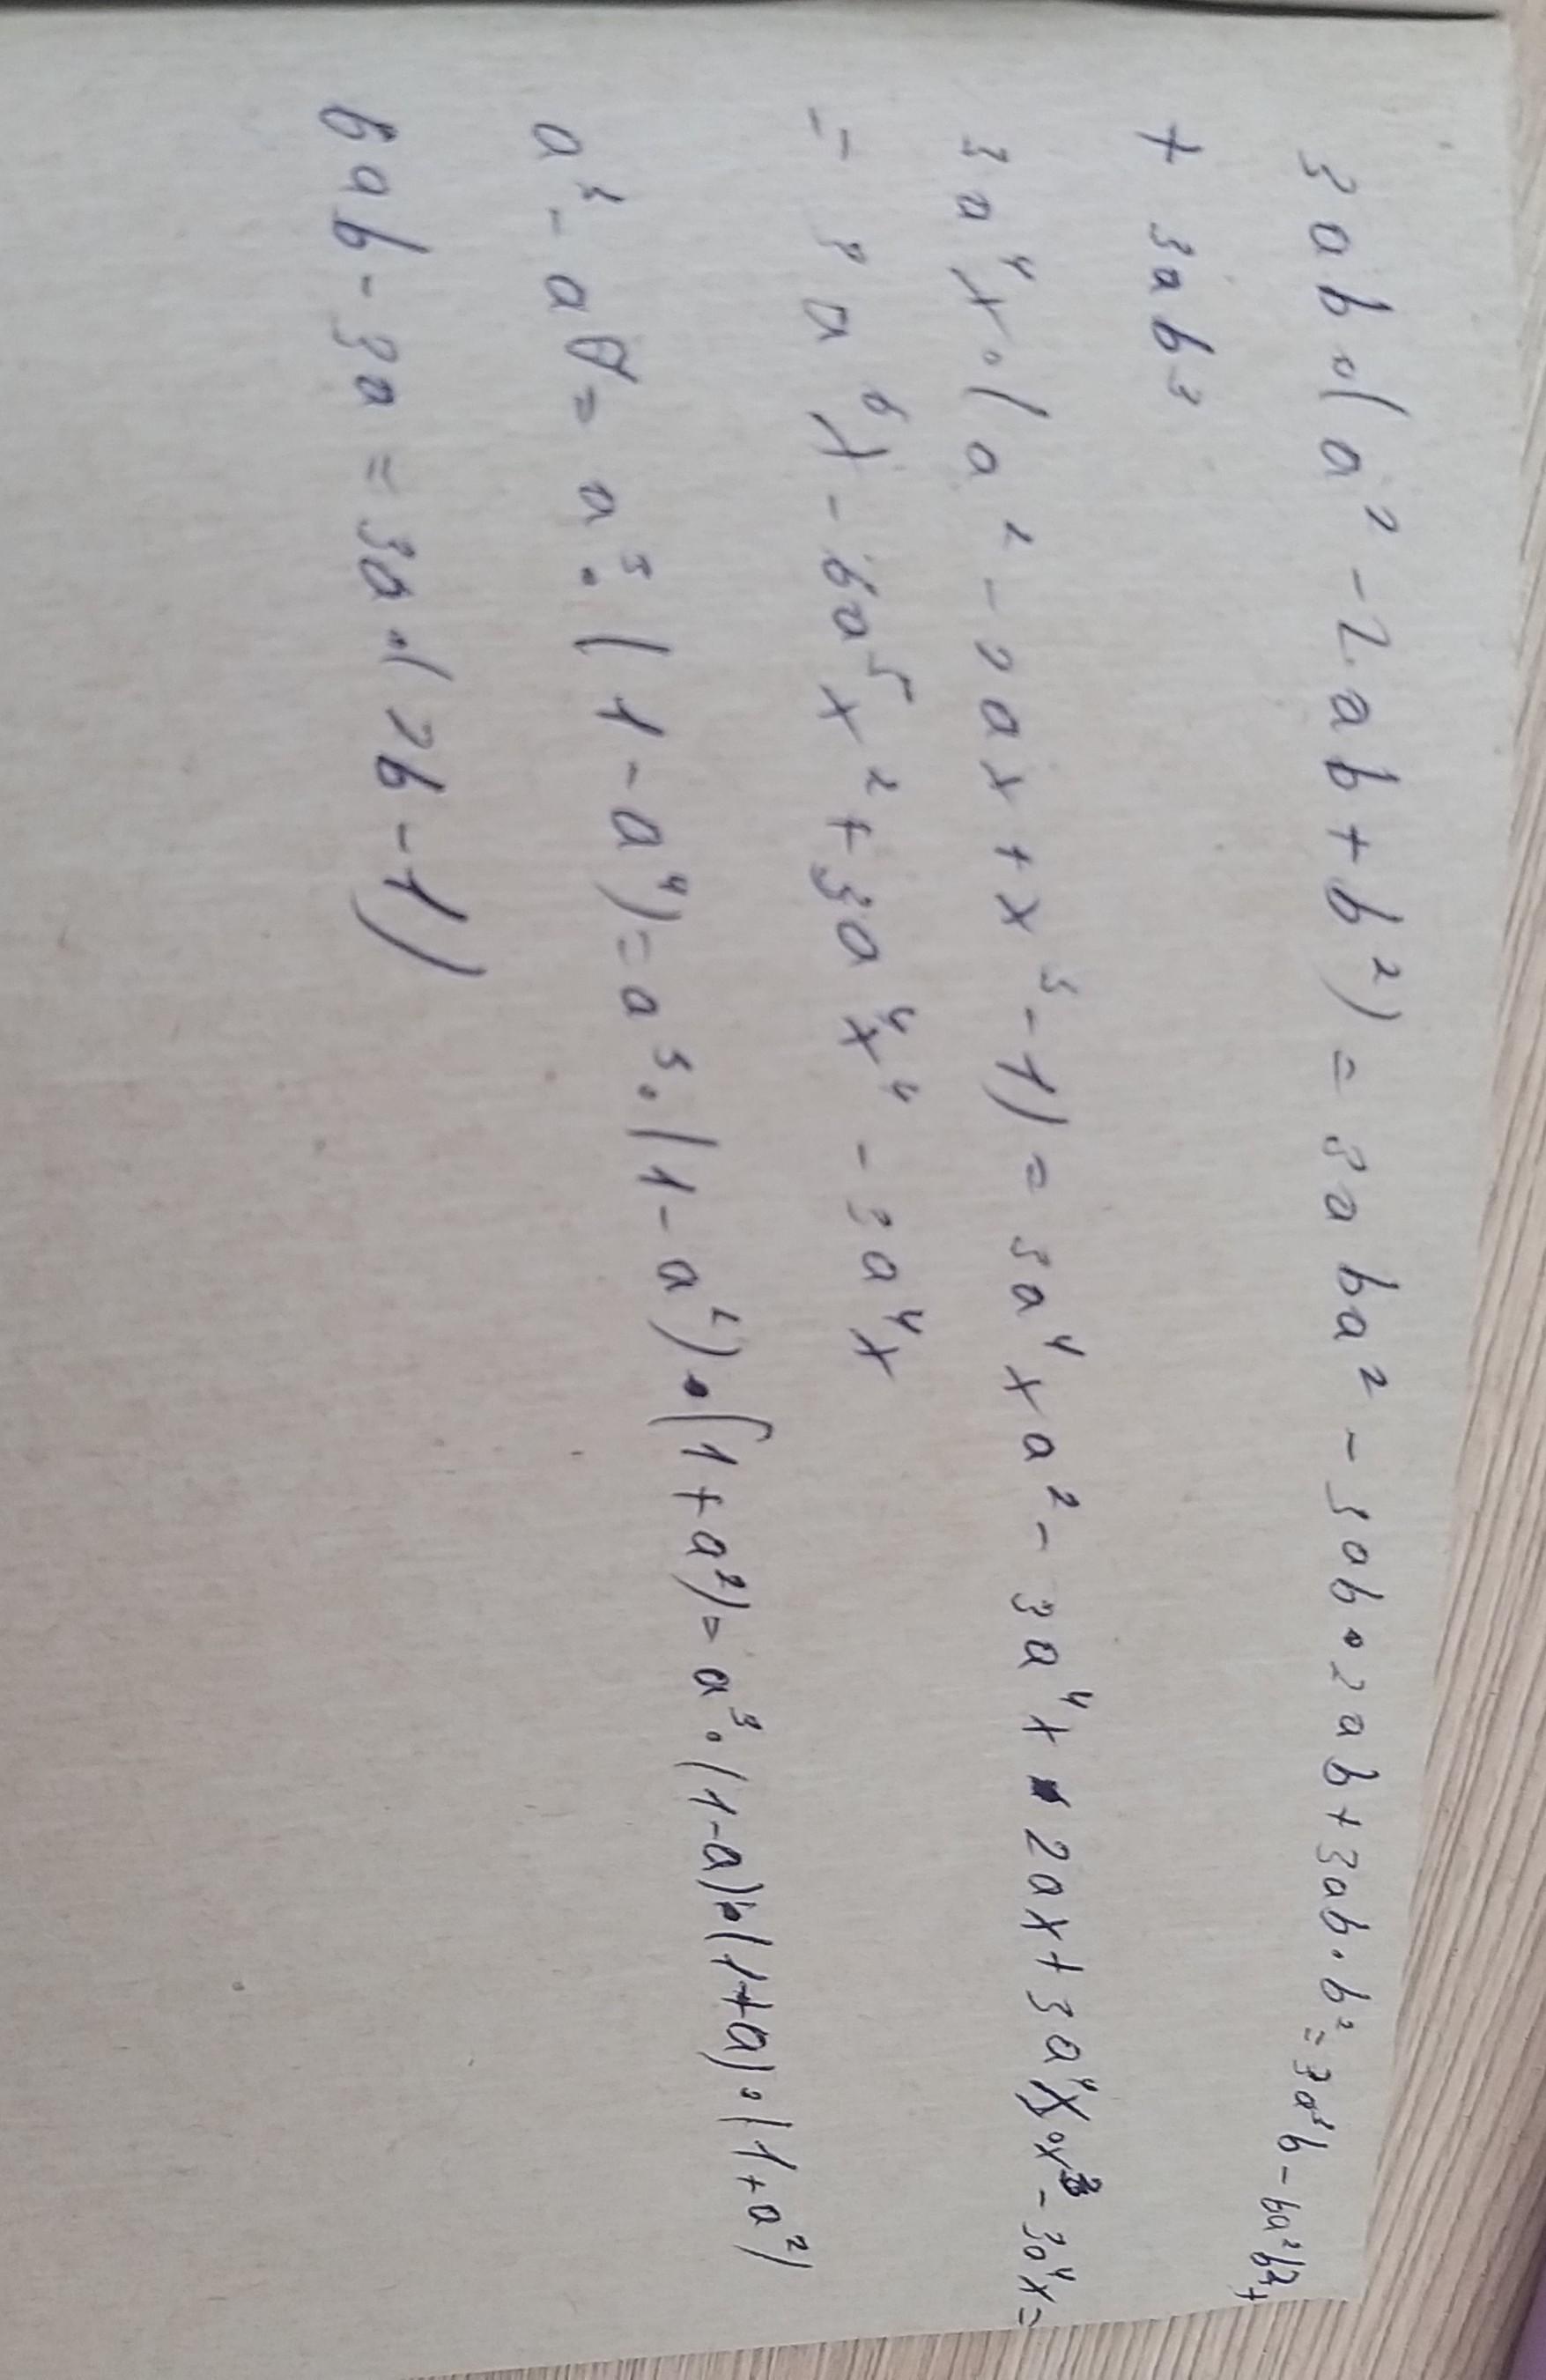 3ab·(a² - 2ab + b²) = 3aba² - 3ab·2ab + 3ab·b² = 3a³b - 6a²b² +
+ 3ab³
3a⁴x·(a² - 2ax + x³ - 1) = 3a⁴xa² - 3a⁴x·2ax + 3a⁴x·x³ - 3a⁴x =
= 3a⁶x - 6a⁵x² + 3a⁴x⁴ - 3a⁴x
a³ - a⁷ = a³·(1 - a⁴) = a³·(1 - a²)·(1 + a²) = a³·(1 - a)·(1 + a)·(1 + a²)
6ab - 3a = 3a·(2b - 1)